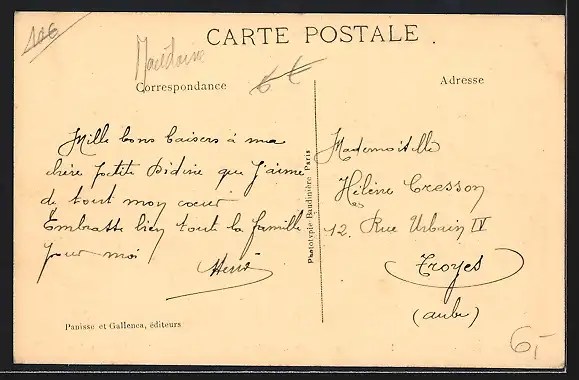 106
CARTE POSTALE
Macédoine
Correspondance
Adresse
Mille bons baisers à ma
chère petite Didine que j'aime
de tout mon coeur
Embrasse bien tout la famille
pour moi
Henri
Mademoiselle
Hélène Cresson
12. Rue Urbain IV
Troyes
(aube)
Phototypie Baudinière Paris
Panisse et Gallenca, éditeurs
6,-